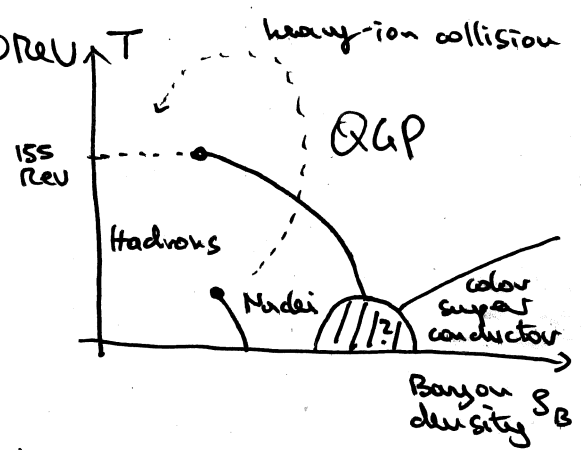 T
heavy-ion collision
QGP
155
Hadrons
Nuclei
?
color
super
conductor
Baryon
density ρ_B